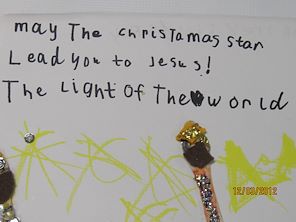 may The christamas star
Lead you to Jesus!
The Light of The world
12/03/2012